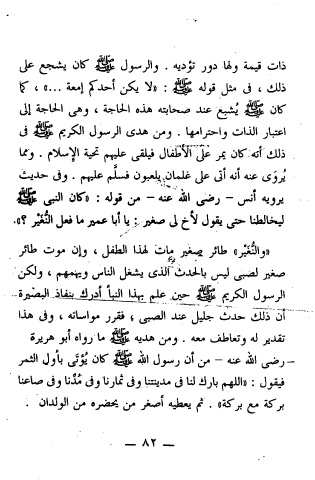 ذات قيمة ولها دور تؤديه . والرسول ﷺ كان يشجع على
ذلك ، فى مثل قوله ﷺ : «لا يكن أحدكم إمعة ...» ، كما
كان ﷺ يُشبع عند صحابته هذه الحاجة ، وهى الحاجة إلى
اعتبار الذات واحترامها . ومن هدى الرسول الكريم ﷺ فى
ذلك أنه كان يمر على الأطفال فيلقى عليهم تحية الإسلام . ومما
يُروَى عنه أنه أتى على غلمان يلعبون فسلَّم عليهم . وفى حديث
يرويه أنس – رضى الله عنه – من قوله : «كان النبى ﷺ
ليخالطنا حتى يقول لأخ لى صغير : يا أبا عمير ما فعل النُّغَيْر ؟».
«والنُّغَيْر» طائر صغير مات لهذا الطفل ، وإن موت طائر
صغير لصبى ليس بالحدث الذى يشغل الناس ويهمهم ، ولكن
الرسول الكريم ﷺ حين علم بهذا النبأ أدرك بنفاذ البصيرة
أن ذلك حدث جليل عند الصبى ؛ فقرر مواساته ، وفى هذا
تقدير له وتعاطف معه . ومن هديه ﷺ ما رواه أبو هريرة
– رضى الله عنه – من أن رسول الله ﷺ كان يُؤتَى بأول الثمر
فيقول : «اللهم بارك لنا فى مدينتنا وفى ثمارنا وفى مُدِّنا وفى صاعنا
بركة مع بركة» . ثم يعطيه أصغر من يحضره من الولدان .
– ٨٢ –